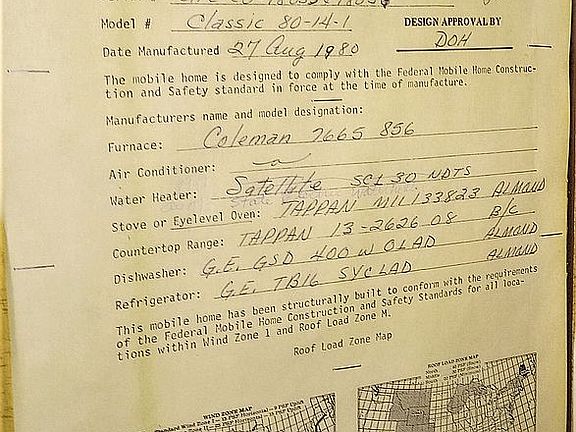 Model # Classic 80-14-1 DESIGN APPROVAL BY
Date Manufactured 27 Aug 1980 DOH
The mobile home is designed to comply with the Federal Mobile Home Construc-
tion and Safety standard in force at the time of manufacture.
Manufacturers name and model designation:
Furnace: Coleman 7665 856
Air Conditioner:
Water Heater: Satellite SCL 30 NDTS
Stove or Eyelevel Oven: TAPPAN M1L 133823 ALMOND
Countertop Range: TAPPAN 13-2626 08 B/C
Dishwasher: G.E. GSD 400 W OLAD ALMOND
Refrigerator: G.E. TB16 SVC LAD ALMOND
This mobile home has been structurally built to conform with the requirements
of the Federal Mobile Home Construction and Safety Standards for all loca-
tions within Wind Zone 1 and Roof Load Zone M.
Roof Load Zone Map
ROOF LOAD ZONE MAP
WIND ZONE MAP